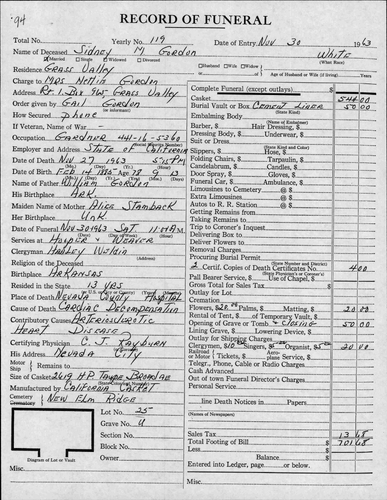 '94
RECORD OF FUNERAL
Total No. Yearly No. 119 Date of Entry Nov 30 1963
Name of Deceased Sidney M Gordon White
(What Race)
Married Single Widowed Divorced Husband Wife Widow Age of Husband or Wife (if living) Years
Residence Grass Valley
Charge to Mrs Gordon
Address Rt. 1, Box 965- Grass Valley
Order given by Gail Gordon
How Secured phone
If Veteran, of War
Occupation Gardner 441-16-5260
Employer and Address State of California
Date of Death Nov 27 1963 5:15 PM
Date of Birth Feb 14 1885 Age 78 9 13
Name of Father William Gordon
His Birthplace Ark.
Maiden Name of Mother Alice Stamback
Her Birthplace Unk
Date of Funeral Nov-30 1963 Sat. 11 AM
Services at Hooper & Weaver
Clergyman Harley
Religion of the Deceased
Birthplace Arkansas
Resided in the State 13 yrs
Place of Death Nevada County Hospital
Cause of Death Cardiac Decompensation
Contributory Causes Arteriosclerotic
Heart Disease
Certifying Physician C. J. Rayburn
His Address Nevada City
Motor
Ship Remains to
Size of Casket 2619 H.P. Taupe
Manufactured by California Casket
Cemetery
Crematory New Elm Ridge
Lot No. 25
Grave No. U
Section No.
Block No.
Owner
Diagram of Lot or Vault
Misc.
Complete Funeral (except outlays) $
Casket 544 00
Burial Vault or Box Cement Liner 50 00
(State Kind)
Embalming Body
(Name of Embalmer)
Barber, $ Hair Dressing, $
Dressing Body, $ Underwear, $
Suit or Dress
(State Kind and Color)
Slippers, $ Hose, $
Folding Chairs, $ Tarpaulin, $
Candelabrum, $ Candles, $
Door Spray, $ Gloves, $
Funeral Car, $ Ambulance, $
Limousines to Cemetery @ $
Extra Limousines @ $
Autos to R. R. Station @ $
Getting Remains
Taking Remains
Trip to Coroner's Inquest
Delivering Box to
Deliver Flowers to
Removal Charges
Procuring Burial Permit
(State Number and District)
2 Certif. Copies of Death Certificates No. 4 00
Pall Bearer Service
Use of Chapel, $
Gross Total for Sales Tax $
Outlay for Lot
Cremation
Flowers, $20.00 Palms, $ Matting, $ 20 00
Rental of Tent, $ of Temporary Vault, $
Opening of Grave or Tomb & Closing 50 00
Lining Grave, $ Lowering Device, $
Outlay for Shipping Charges
Clergyman, $10 Singers, $ Organist, $ 20 00
Railroad
or Motor Tickets, $ Aeroplane Service, $
Telegr., Phone, Cable or Radio Charges
Cash Advanced
Out of town Funeral Director's Charges
Personal Service
line Death Notices in Papers
(Names of Newspapers)
Sales Tax $ 13 68
Total Footing of Bill $ 701 68
Less $
Balance $
Entered into Ledger, page or below.
Misc.